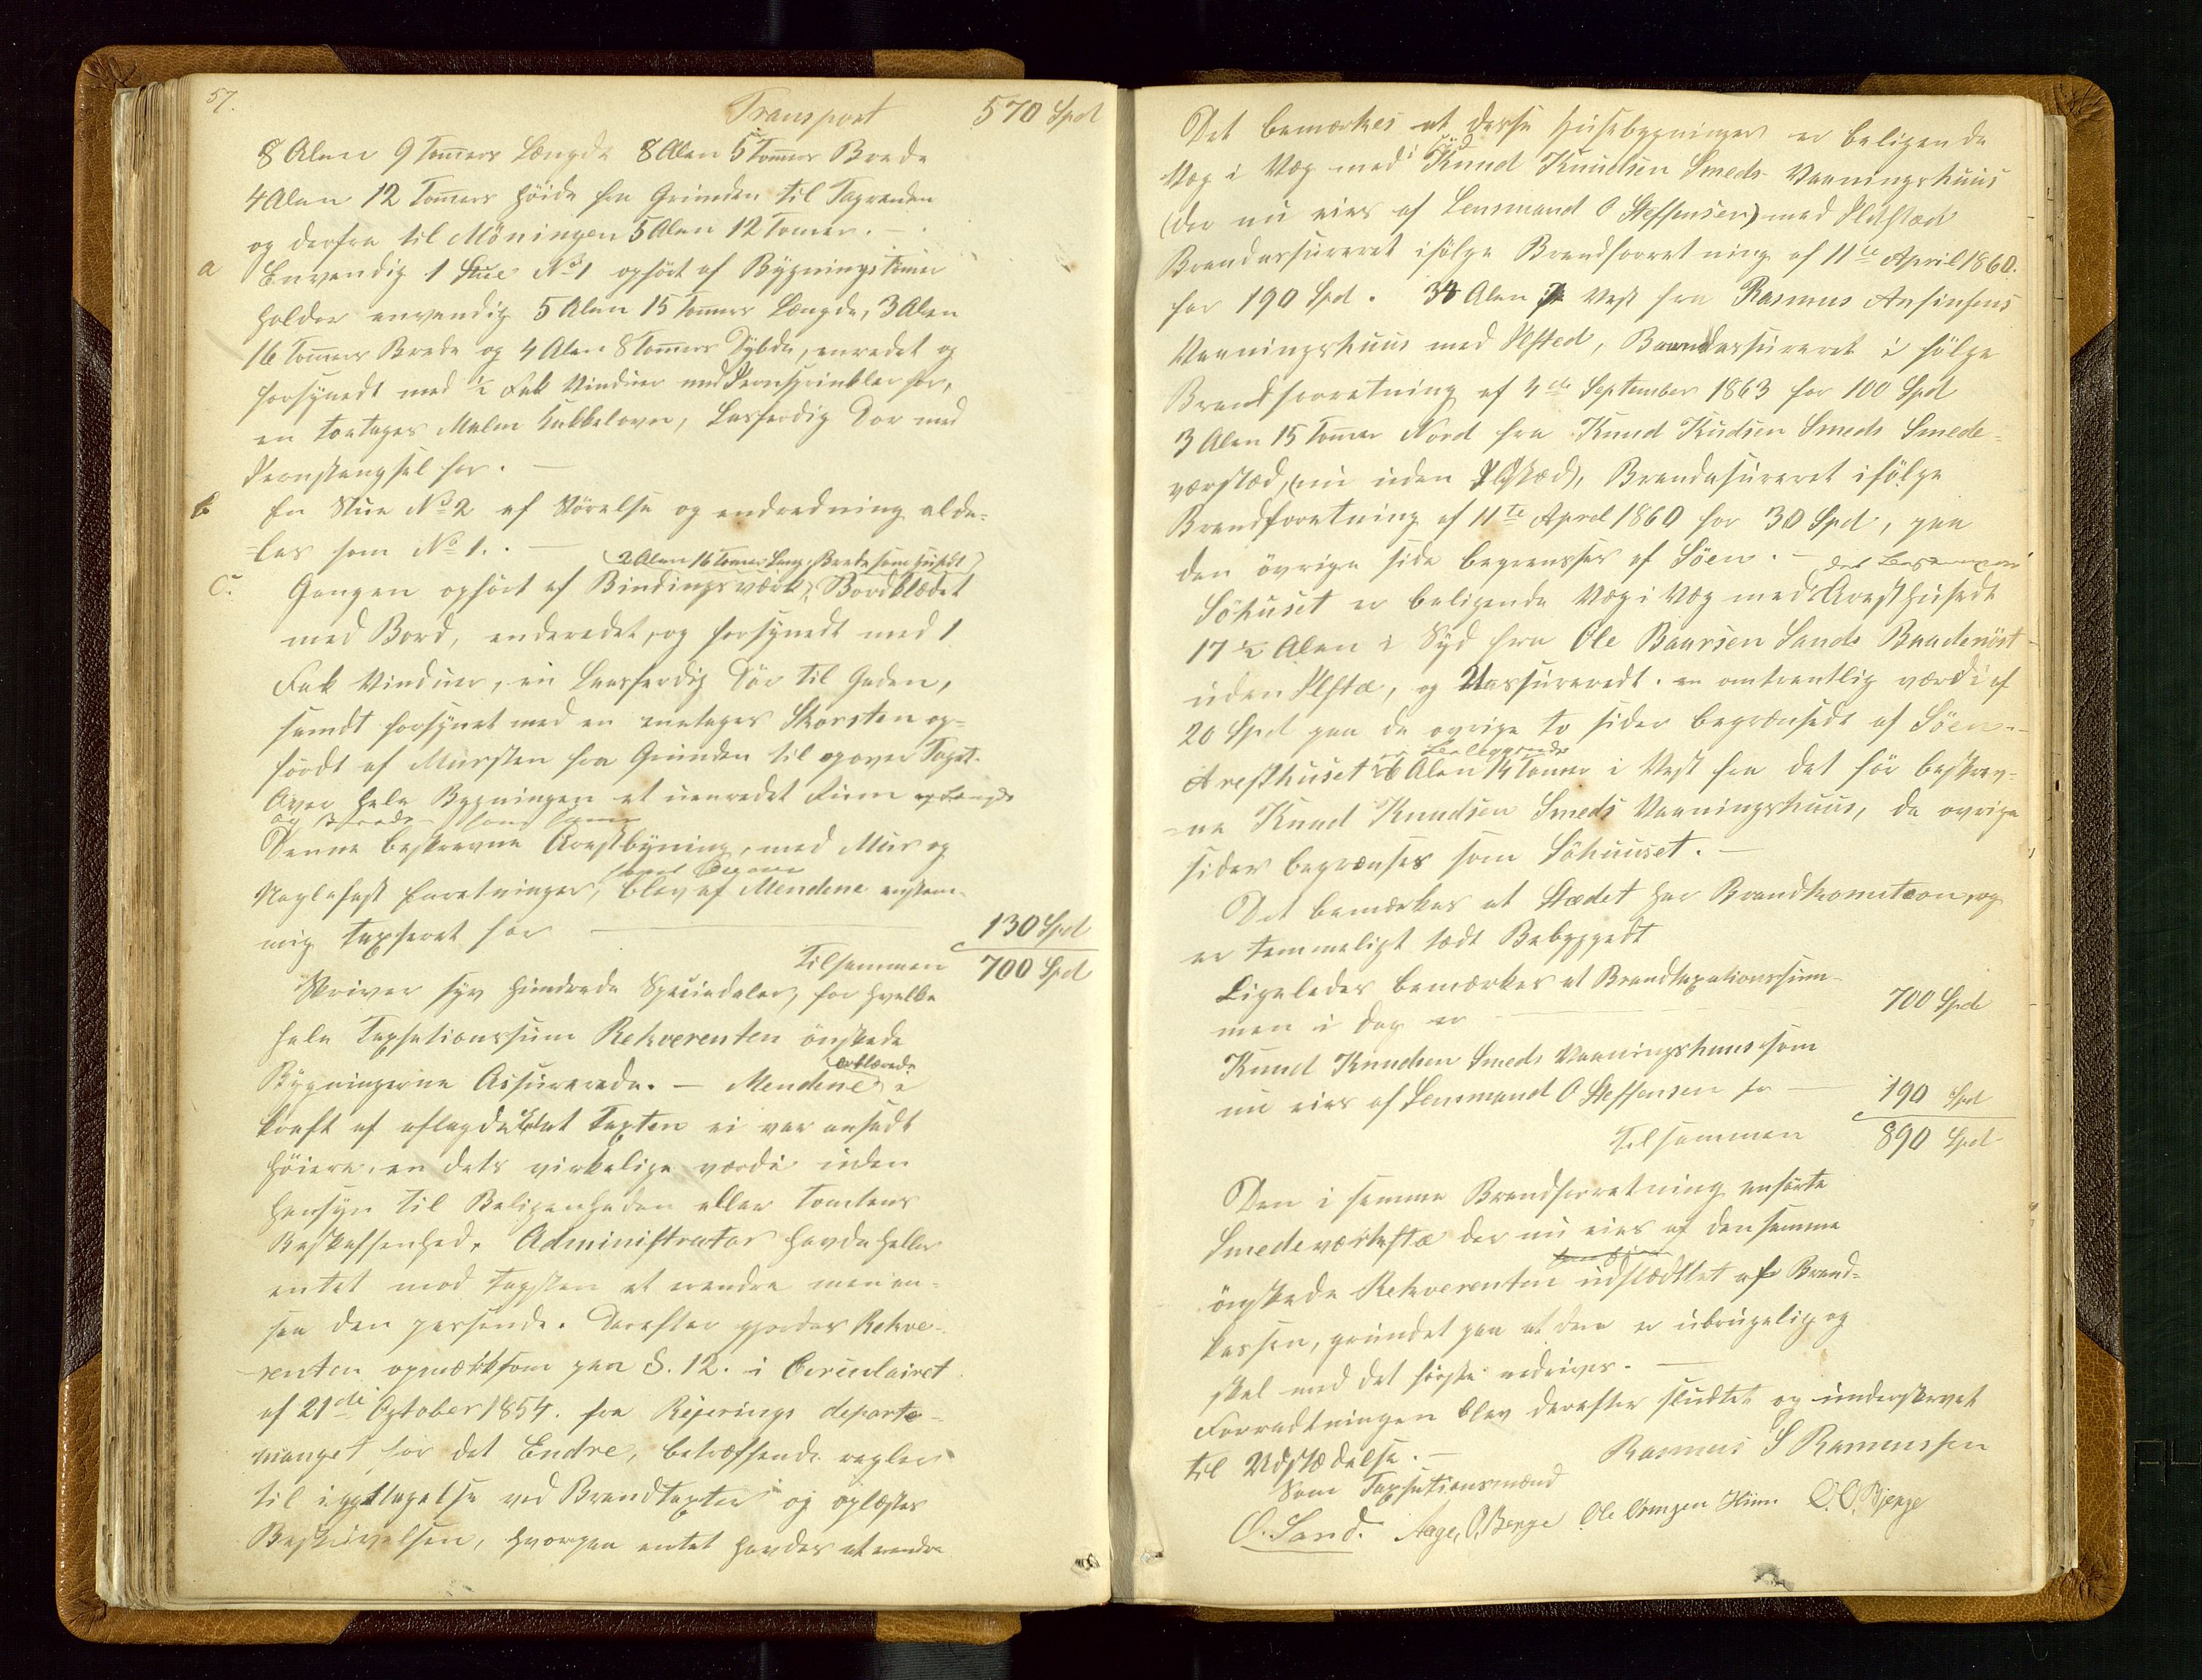 57.
Transport 570 Spd
8 Alen 9 Tommers Længde 8 Alen 5 Tommers Brede
4 Alen 12 Tommers Höide fra Grunden til Tagrenden
og derfra til Möningen 5 Alen 12 Tommer. -
a Envendig 1 Stue No 1 opfört af Bygningstömer
holder envendig 5 Alen 15 Tommers Længde, 3 Alen
16 Tommers Brede og 4 Alen 8 Tommers Dybde, enredet og
forsynedt med 1/2 Fak Vinduer med Jernsprinkler for,
en toetages Malm Kakkelovn, Lasferdig Dor med
Jernstengsel for. -
b En Stue No 2 af Störelse og endredning alde-
=les som No 1. -
(2 Alen 16 Tommer Lang, Brede som huset)
C. Gangen opfört af Bindingsværk, Bordklædet
med Bord, enderedet, og forsynedt med 1
Fak Vinduer, en Laasferdig Dör til Gaden,
samdt forsynet med en enetages Skorsten op=
fördt af Mursten fra Grunden til og over Taget.
Over hele Bygningen et uenredet Rum og Længde
og Brede
Denne beskrevne Arestbyning, med Mur og
Naglefast Enretninger, blev af Mendene enstem-
mig taxseret for 130 Spd
Tilsammen 700 Spd
Skriver syv Hundrede Speciedaler, for hvelke
hele Taxsationssum Rekverenten önskede
Bygningerne Assurerede. - Mendene erklærede i
kraft af aflagde Eed at Taxten ei var ansadt
höiere en dets virkelige værdi uden
Hensyn til Beligenheden eller Tomtens
Beskaffenhed. Administrator havde heller
entet mod Taxsten at erendre men an-
saa den passende. Derefter gjordes Rekve-
renten opmærksom paa §. 12. i Circulairet
af 21de October 1854. fra Rejerings departe-
manget for det Endre, betræffende regler
til iagttagelse ved Brandtaxter og oplæstes
Beskrivelsen, hvorpaa entet havdes at erendre
Det bemærkes at desse Husebygninger er beligende
Væg i Væg med Knud Knudsen Smeds Vaaningshuus
(der nu eies af Lensmand O Steffensen) med Ildstæd
Brandassureret ifölge Brandforretning af 11te April 1860.
for 190 Spd. 34 Alen i Vest fra Rasmus Ansinsens
Vaaningshuus med Ilsted, Brandassureret i fölge
Brandforretning af 4de September 1863 for 100 Spd
3 Alen 15 Tommer Nord fra Knud Kudsen Smeds Smede=
værstæd, (nu uden Ilstæd), Brandasureret ifölge
Brandforetning af 11te Aprel 1860 for 30 Spd, paa
den övrige side begrensses af Söen. -
Söhuset er beligende Væg i Væg med Aresthusedt
17 1/2 Alen i Syd fra Ole Baarsen Sands Baadenöst
uden Ilstæ, og Uassureredt. en omtrentlig værdi af
20 Spd paa de ovrige to sider begrænsedt af Söen.-
Aresthuset er Beleggende 6 Alen 14 Tommer i Vest fra det för beskrev-
=ne Knud Knudsen Smeds Vaaningshuus, de ovrige
sider begrænses som Söhuuset. -
Det bemærkes at Stædet har Brandkomiteon, og
er temmeligt tædt Bebyggedt
Ligeledes bemærkes at Brandtaxationssum-
men i dag er 700 Spd
Knud Knudsen Smeds Vaaningshuus som
nu eies af Lensmand O Steffensen for 190 Spd
Tilsammen 890 Spd
Den i samme Brandforretning anförte
Smedeværkstæ der nu eies af den samme
önskede Rekverenten udslædtet af Brand=
kassen, grundet paa at den er ubrugelig og
skal med det förste nedrives. -
Forredtningen blev derefter sludtet og underskrevet
til Udstædelse. - Rasmus S Ramussen
Som Taxsationsmænd
O. Sand. Aage, P. Berge Ole O. Bjerge